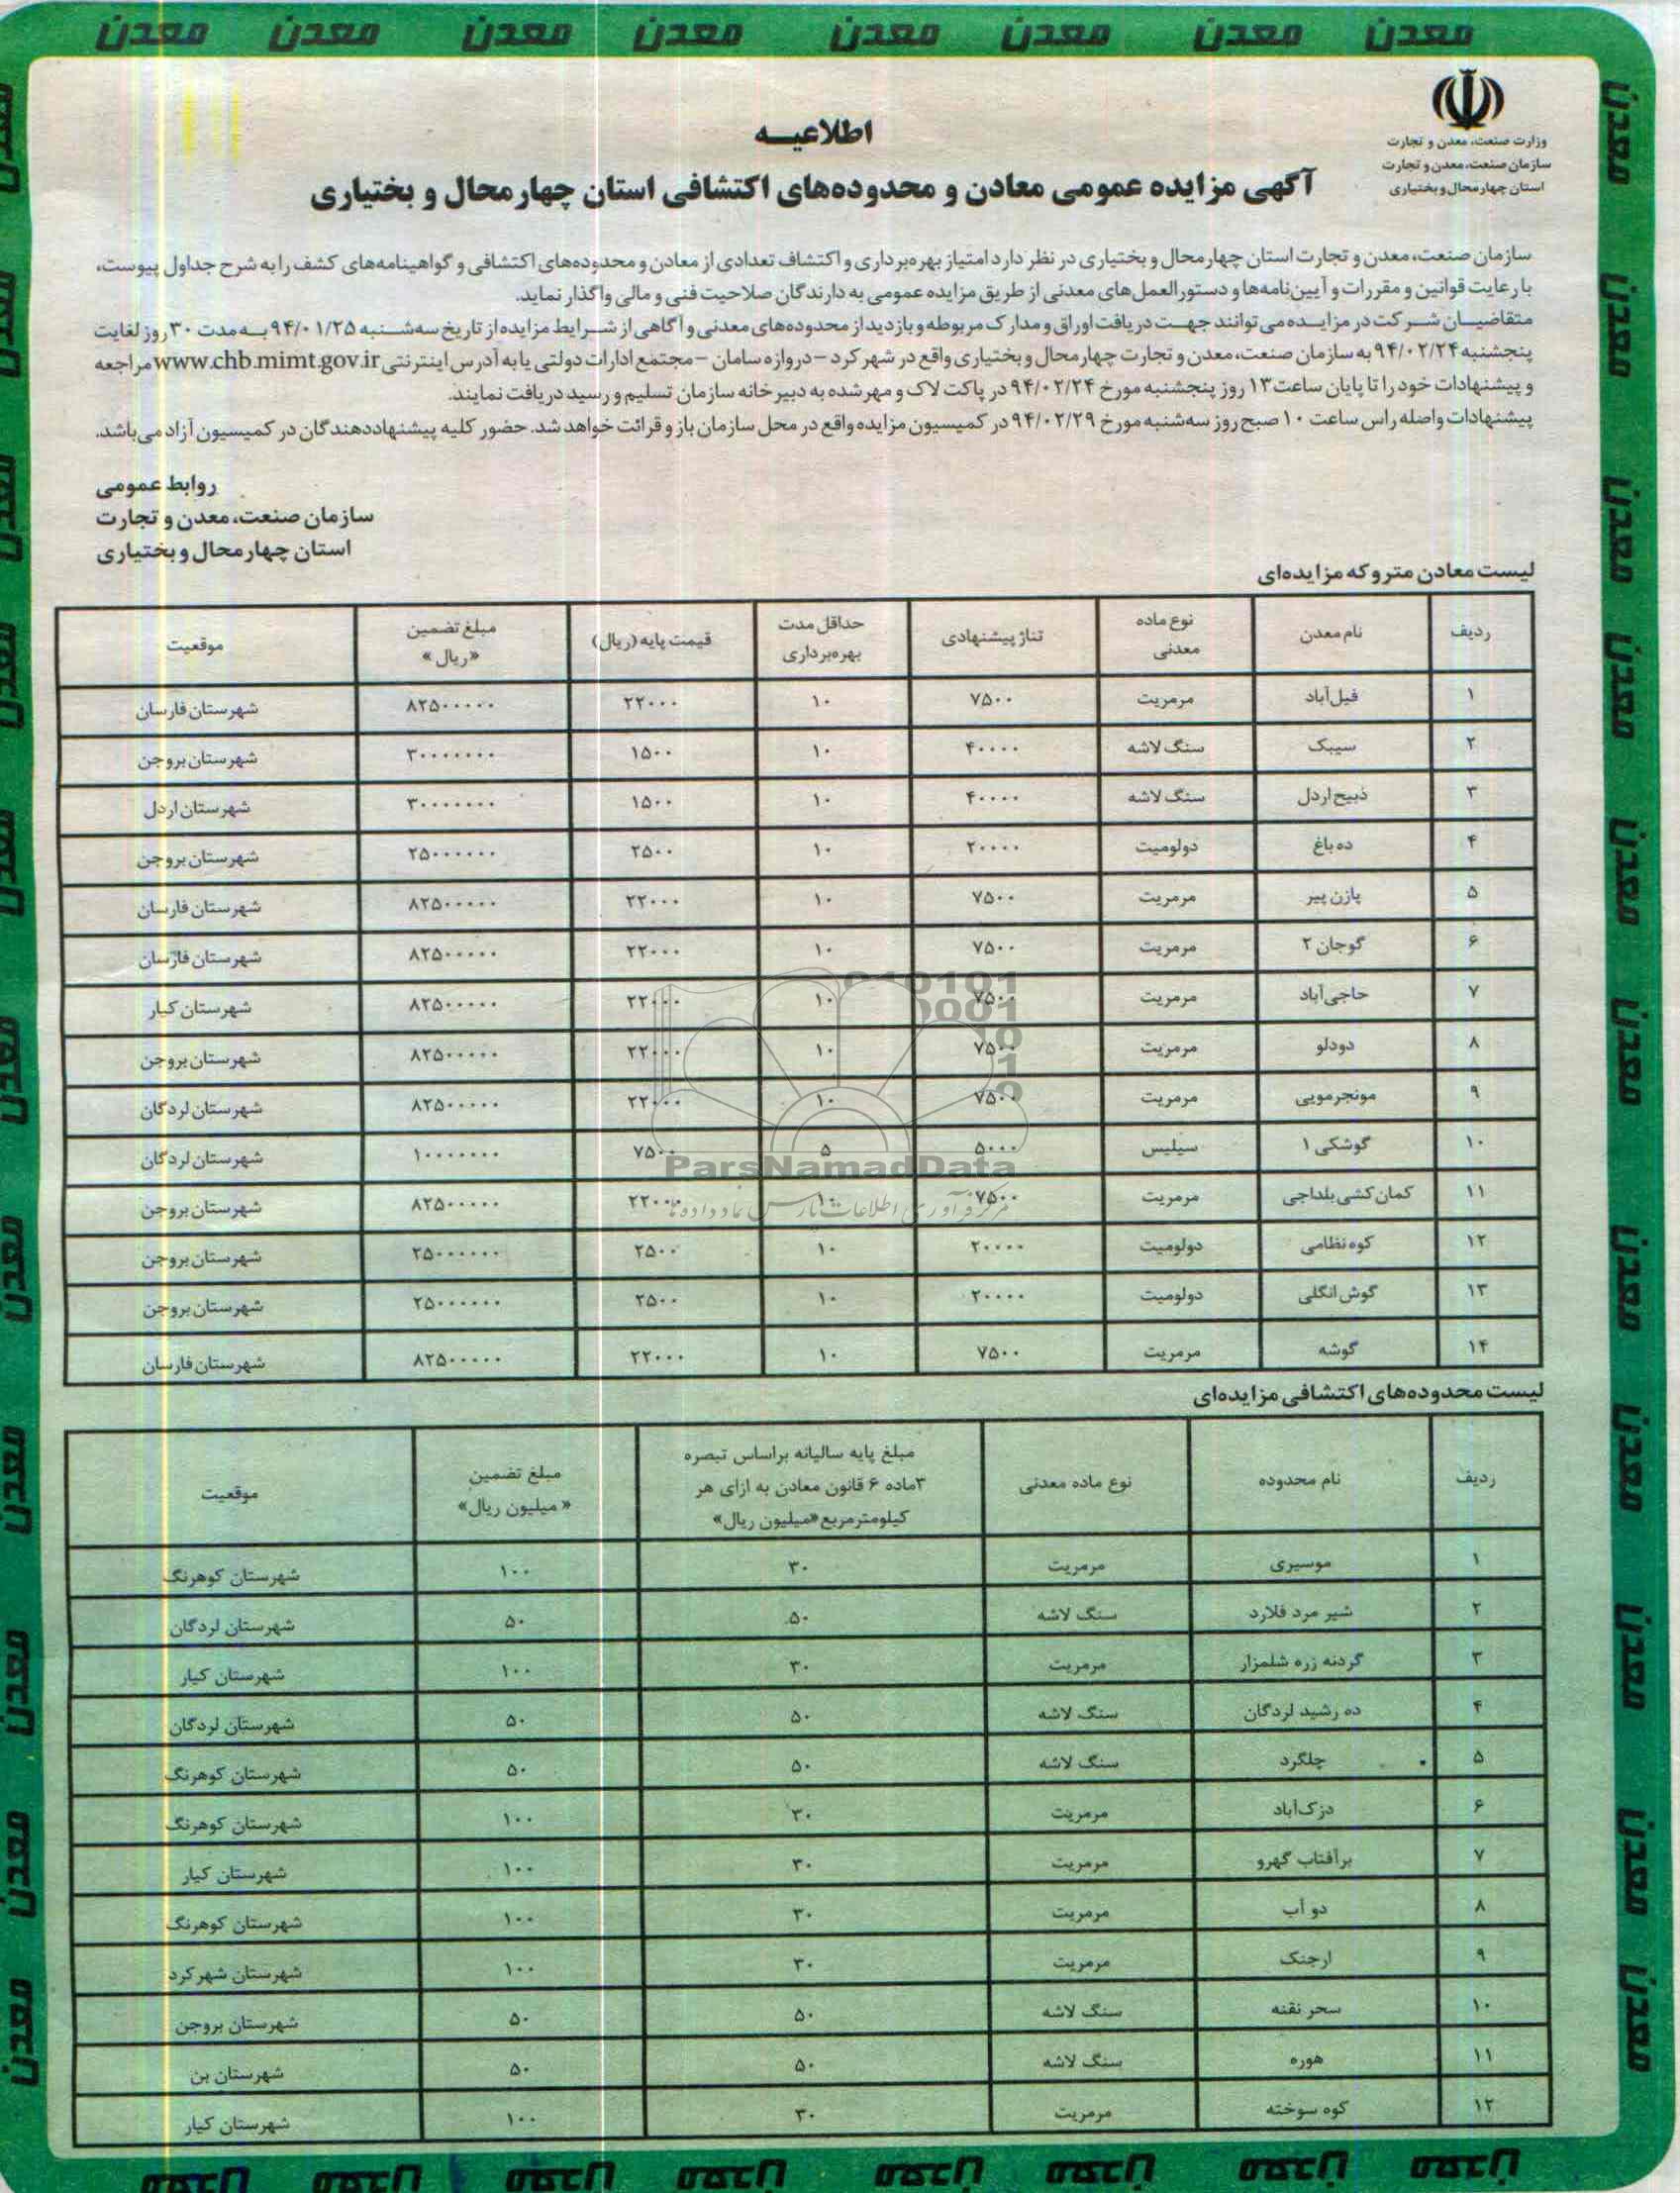 معدن معدن معدن معدن معدن معدن معدن معدن
وزارت صنعت، معدن و تجارت
سازمان صنعت، معدن و تجارت
استان چهارمحال و بختیاری
اطلاعیـــه
آگهی مزایده عمومی معادن و محدوده‌های اکتشافی استان چهارمحال و بختیاری
سازمان صنعت، معدن و تجارت استان چهارمحال و بختیاری در نظر دارد امتیاز بهره‌برداری و اکتشاف تعدادی از معادن و محدوده‌های اکتشافی و گواهینامه‌های کشف را به شرح جداول پیوست،
با رعایت قوانین و مقررات و آیین‌نامه‌ها و دستورالعمل‌های معدنی از طریق مزایده عمومی به دارندگان صلاحیت فنی و مالی واگذار نماید.
متقاضیان شرکت در مزایده می‌توانند جهت دریافت اوراق و مدارک مربوطه و بازدید از محدوده‌های معدنی و آگاهی از شرایط مزایده از تاریخ سه‌شنبه ۹۴/۰۱/۲۵ به مدت ۳۰ روز لغایت
پنجشنبه ۹۴/۰۲/۲۴ به سازمان صنعت، معدن و تجارت چهارمحال و بختیاری واقع در شهرکرد – دروازه سامان – مجتمع ادارات دولتی یا به آدرس اینترنتی www.chb.mimt.gov.ir مراجعه
و پیشنهادات خود را تا پایان ساعت ۱۳ روز پنجشنبه مورخ ۹۴/۰۲/۲۴ در پاکت لاک و مهر شده به دبیرخانه سازمان تسلیم و رسید دریافت نمایند.
پیشنهادات واصله راس ساعت ۱۰ صبح روز سه‌شنبه مورخ ۹۴/۰۲/۲۹ در کمیسیون مزایده واقع در محل سازمان باز و قرائت خواهد شد. حضور کلیه پیشنهاددهندگان در کمیسیون آزاد می‌باشد.
روابط عمومی
سازمان صنعت، معدن و تجارت
استان چهارمحال و بختیاری
لیست معادن متروکه مزایده‌ای
ردیف نام معدن نوع ماده معدنی تناژ پیشنهادی حداقل مدت بهره‌برداری قیمت پایه (ریال) مبلغ تضمین «ریال» موقعیت
۱ فیل‌آباد مرمریت ۷۵۰۰ ۱۰ ۲۲۰۰۰ ۸۲۵۰۰۰۰۰ شهرستان فارسان
۲ سیبک سنگ لاشه ۴۰۰۰۰ ۱۰ ۱۵۰۰ ۳۰۰۰۰۰۰۰ شهرستان بروجن
۳ ذبیح اردل سنگ لاشه ۴۰۰۰۰ ۱۰ ۱۵۰۰ ۳۰۰۰۰۰۰۰ شهرستان اردل
۴ ده باغ دولومیت ۲۰۰۰۰ ۱۰ ۲۵۰۰ ۲۵۰۰۰۰۰۰ شهرستان بروجن
۵ پازن پیر مرمریت ۷۵۰۰ ۱۰ ۲۲۰۰۰ ۸۲۵۰۰۰۰۰ شهرستان فارسان
۶ گوجان ۲ مرمریت ۷۵۰۰ ۱۰ ۲۲۰۰۰ ۸۲۵۰۰۰۰۰ شهرستان فارسان
۷ حاجی‌آباد مرمریت ۷۵۰۰ ۱۰ ۲۲۰۰۰ ۸۲۵۰۰۰۰۰ شهرستان کیار
۸ دودلو مرمریت ۷۵۰۰ ۱۰ ۲۲۰۰۰ ۸۲۵۰۰۰۰۰ شهرستان بروجن
۹ مونجرمویی مرمریت ۷۵۰۰ ۱۰ ۲۲۰۰۰ ۸۲۵۰۰۰۰۰ شهرستان لردگان
۱۰ گوشکی ۱ سیلیس ۵۰۰۰ ۵ ۷۵۰۰ ۱۰۰۰۰۰۰۰ شهرستان لردگان
۱۱ کمان کشی بلداجی مرمریت ۷۵۰۰ ۱۰ ۲۲۰۰۰ ۸۲۵۰۰۰۰۰ شهرستان بروجن
۱۲ کوه نظامی دولومیت ۲۰۰۰۰ ۱۰ ۲۵۰۰ ۲۵۰۰۰۰۰۰ شهرستان بروجن
۱۳ گوش انگلی دولومیت ۲۰۰۰۰ ۱۰ ۲۵۰۰ ۲۵۰۰۰۰۰۰ شهرستان بروجن
۱۴ گوشه مرمریت ۷۵۰۰ ۱۰ ۲۲۰۰۰ ۸۲۵۰۰۰۰۰ شهرستان فارسان
ParsNamadData
مرکز فرآوری اطلاعات پارس نماد داده ها
لیست محدوده‌های اکتشافی مزایده‌ای
ردیف نام محدوده نوع ماده معدنی مبلغ پایه سالیانه براساس تبصره ۳ماده ۶ قانون معادن به ازای هر کیلومترمربع «میلیون ریال» مبلغ تضمین «میلیون ریال» موقعیت
۱ موسیری مرمریت ۳۰ ۱۰۰ شهرستان کوهرنگ
۲ شیر مرد فلارد سنگ لاشه ۵۰ ۵۰ شهرستان لردگان
۳ گردنه زره شلمزار مرمریت ۳۰ ۱۰۰ شهرستان کیار
۴ ده رشید لردگان سنگ لاشه ۵۰ ۵۰ شهرستان لردگان
۵ چلگرد سنگ لاشه ۵۰ ۵۰ شهرستان کوهرنگ
۶ دزک‌آباد مرمریت ۳۰ ۱۰۰ شهرستان کوهرنگ
۷ برآفتاب گهرو مرمریت ۳۰ ۱۰۰ شهرستان کیار
۸ دو آب مرمریت ۳۰ ۱۰۰ شهرستان کوهرنگ
۹ ارجنک مرمریت ۳۰ ۱۰۰ شهرستان شهرکرد
۱۰ سحر نقنه سنگ لاشه ۵۰ ۵۰ شهرستان بروجن
۱۱ هوره سنگ لاشه ۵۰ ۵۰ شهرستان بن
۱۲ کوه سوخته مرمریت ۳۰ ۱۰۰ شهرستان کیار
معدن معدن معدن معدن معدن معدن معدن معدن